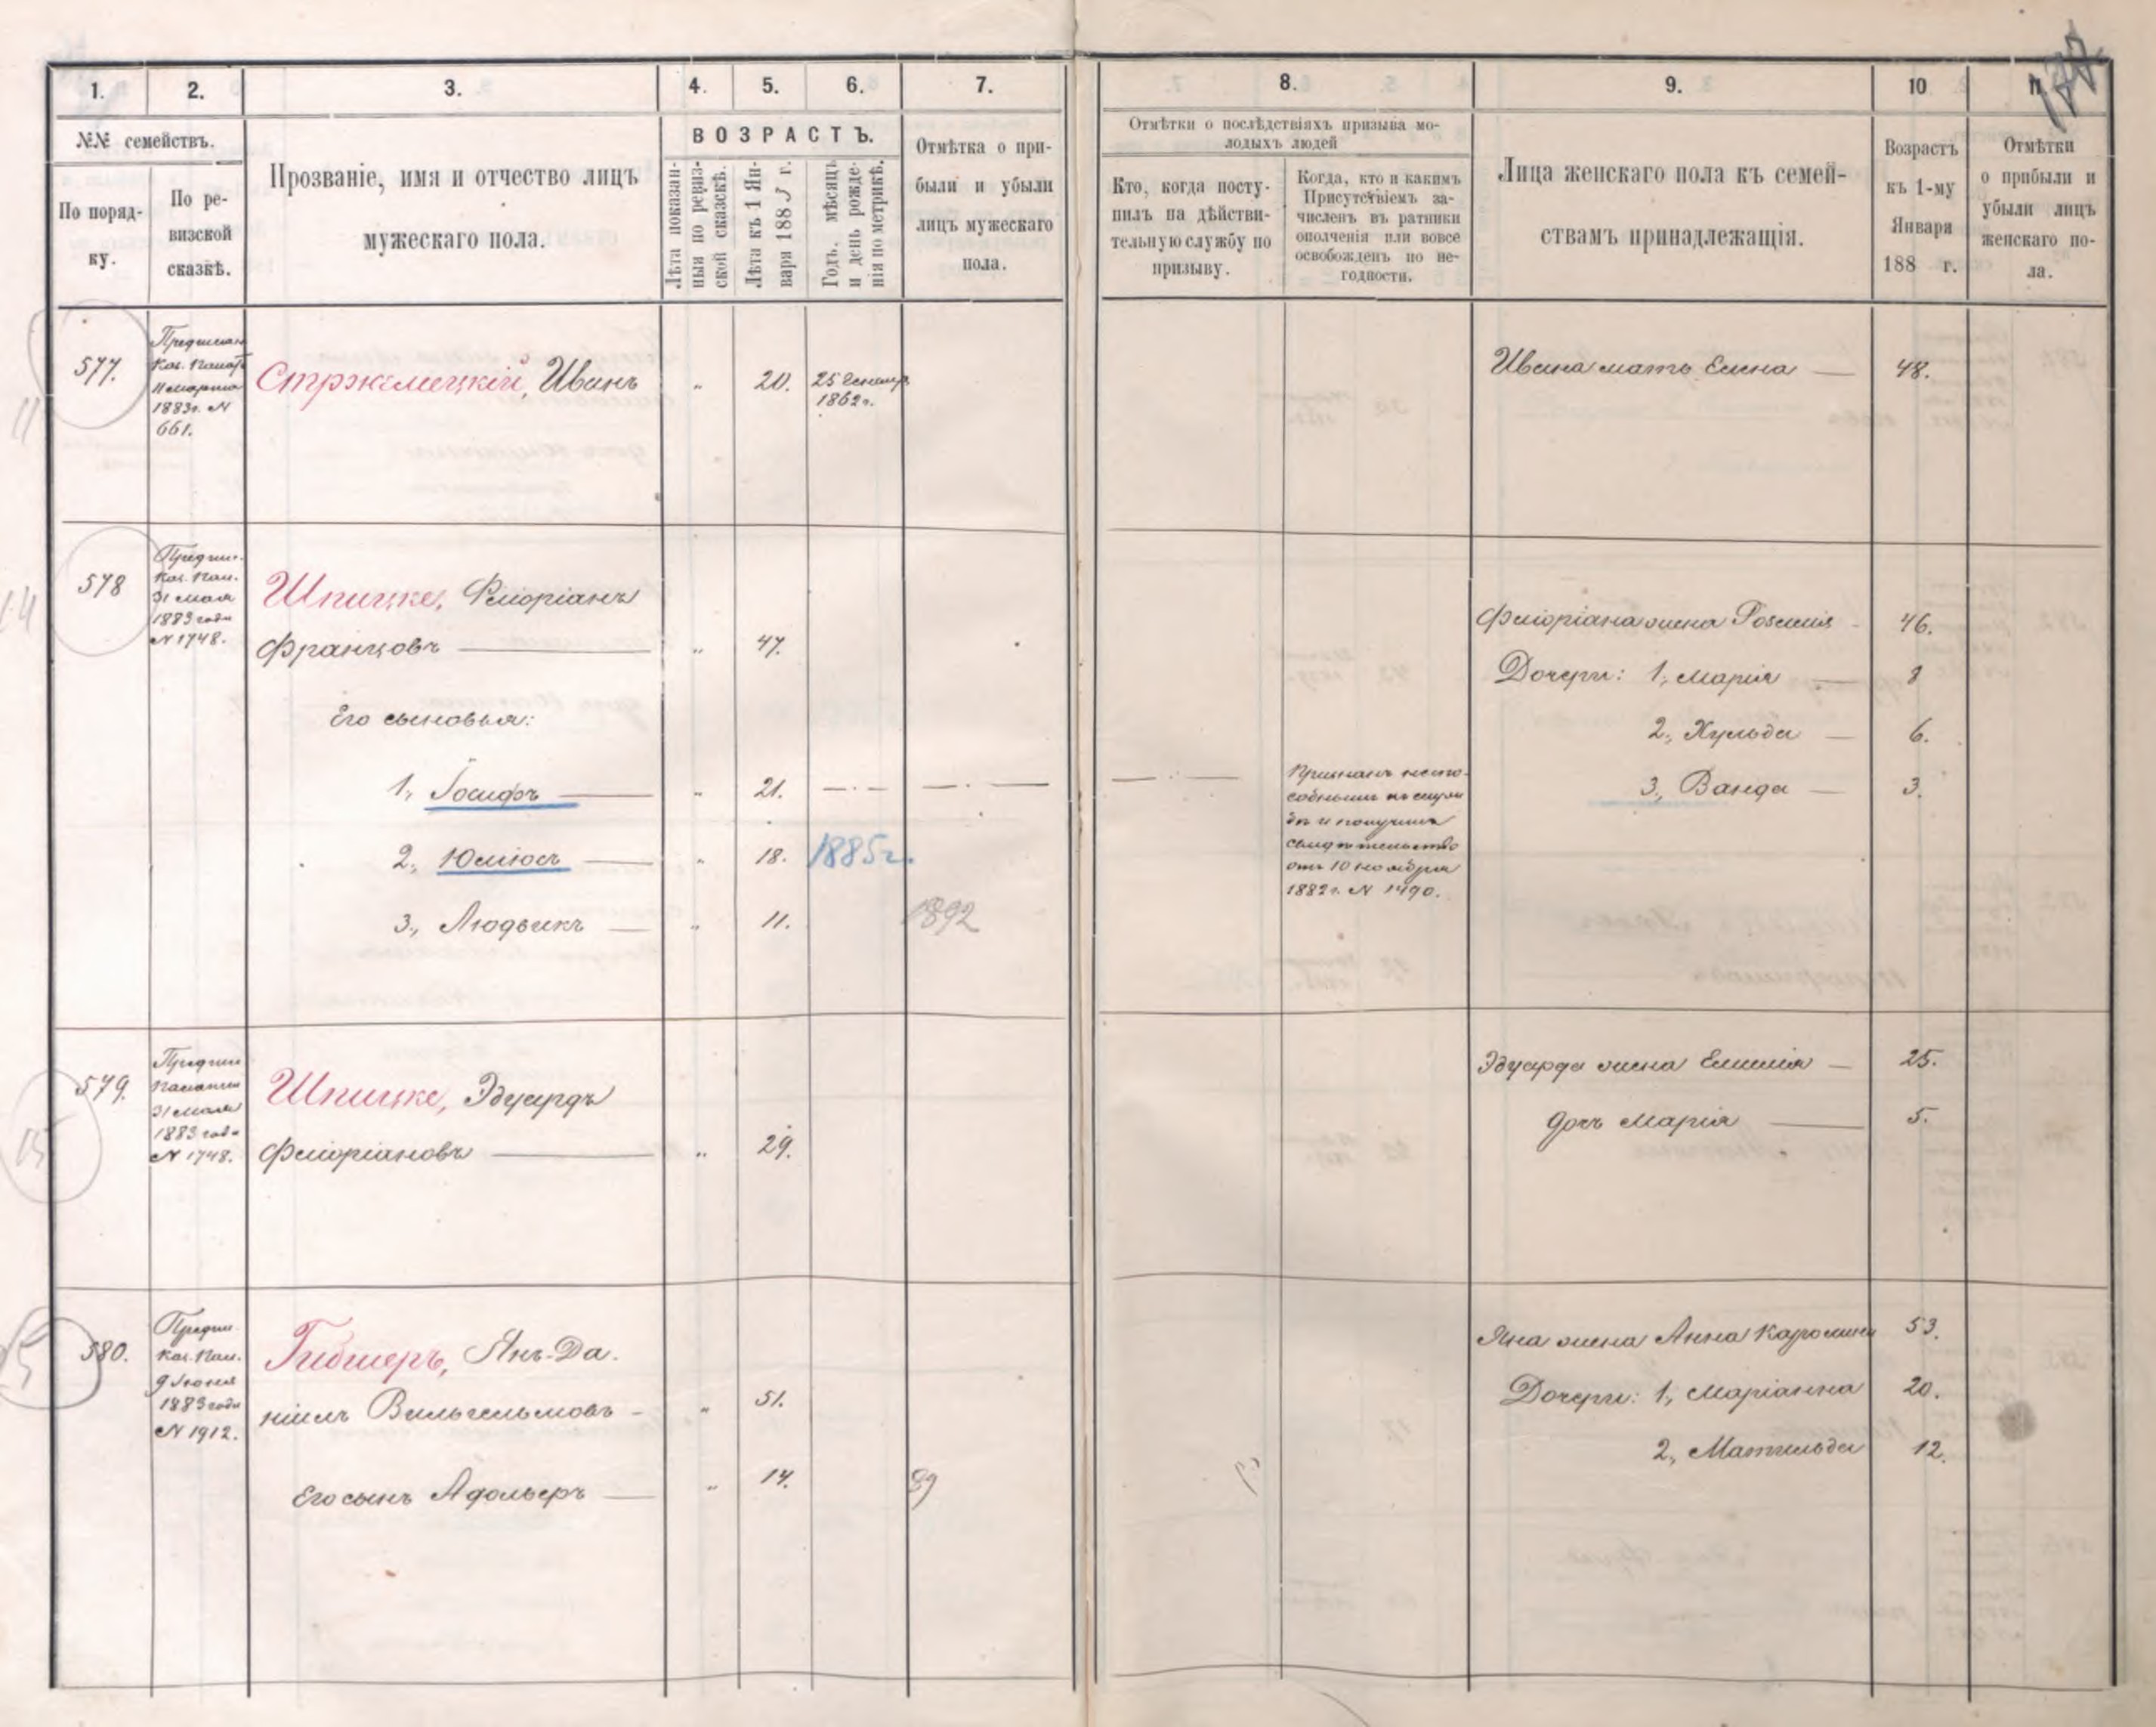 177
1. 2. 3. 4. 5. 6. 7. 8. 9. 10
№№ семействъ.
По поряд-
ку.
По ре-
визской
сказкѣ.
Прозваніе, имя и отчество лицъ
мужескаго пола.
ВОЗРАСТЪ.
Лѣта показан-
ныя по ревиз-
ской сказскѣ.
Лѣта къ 1 Ян-
варя 1883 г.
Годъ, мѣсяцъ
и день рожде-
нія по метрикѣ.
Отмѣтка о при-
были и убыли
лицъ мужескаго
пола.
Отмѣтки о послѣдствіяхъ призыва мо-
лодыхъ людей
Кто, когда посту-
пилъ на дѣйстви-
тельную службу по
призыву.
Когда, кто и какимъ
Присутствіемъ за-
численъ въ ратники
ополченія или вовсе
освобожденъ по не-
годности.
Лица женскаго пола къ семей-
ствамъ принадлежащія.
Возрастъ
къ 1-му
Января
188 г.
Отмѣтки
о прибыли и
убыли лицъ
женскаго по-
ла.
577.
Каз. Палат
11 марта
1883г. N
661.
Стржемецкій, Иванъ
„ 20.
25 Генвар
1862г.
Ивана мать Елена — 48.
578
Предпис.
Каз. Пал.
31 мая
1883 года
N 1748.
Шпицке, Флоріанъ
Францовъ — „ 47.
Его сыновья:
1, Іосифъ — „ 21. —·— —·—
2, Юліюсъ — „ 18. 1885г.
3, Людвикъ — „ 11. 1892
—·—
Признанъ неспо-
собнымъ къ служ
бѣ и получилъ
свидѣтельство
отъ 10 ноября
1882г. N 1490.
Флоріана жена Розалія - 46.
Дочери: 1, Марія — 8
2, Хульда — 6.
3, Ванда — 3.
579.
Предпис
Палаты
31 мая
1883 года
N 1748.
Шпицке, Эдуардъ
Флоріановъ — „ 29.
Эдуарда жена Емилія — 25.
дочь Марія — 5.
580.
Предпи.
Каз. Пал.
9 Іюня
1883 года
N 1912.
Гибнеръ, Янъ-Да.
ніилъ Вильгельмовъ - „ 51.
Его сынъ Адольфъ — „ 14. 89
Яна жена Анна Каролина 53.
Дочери: 1, Маріанна 20.
2, Матильда 12.